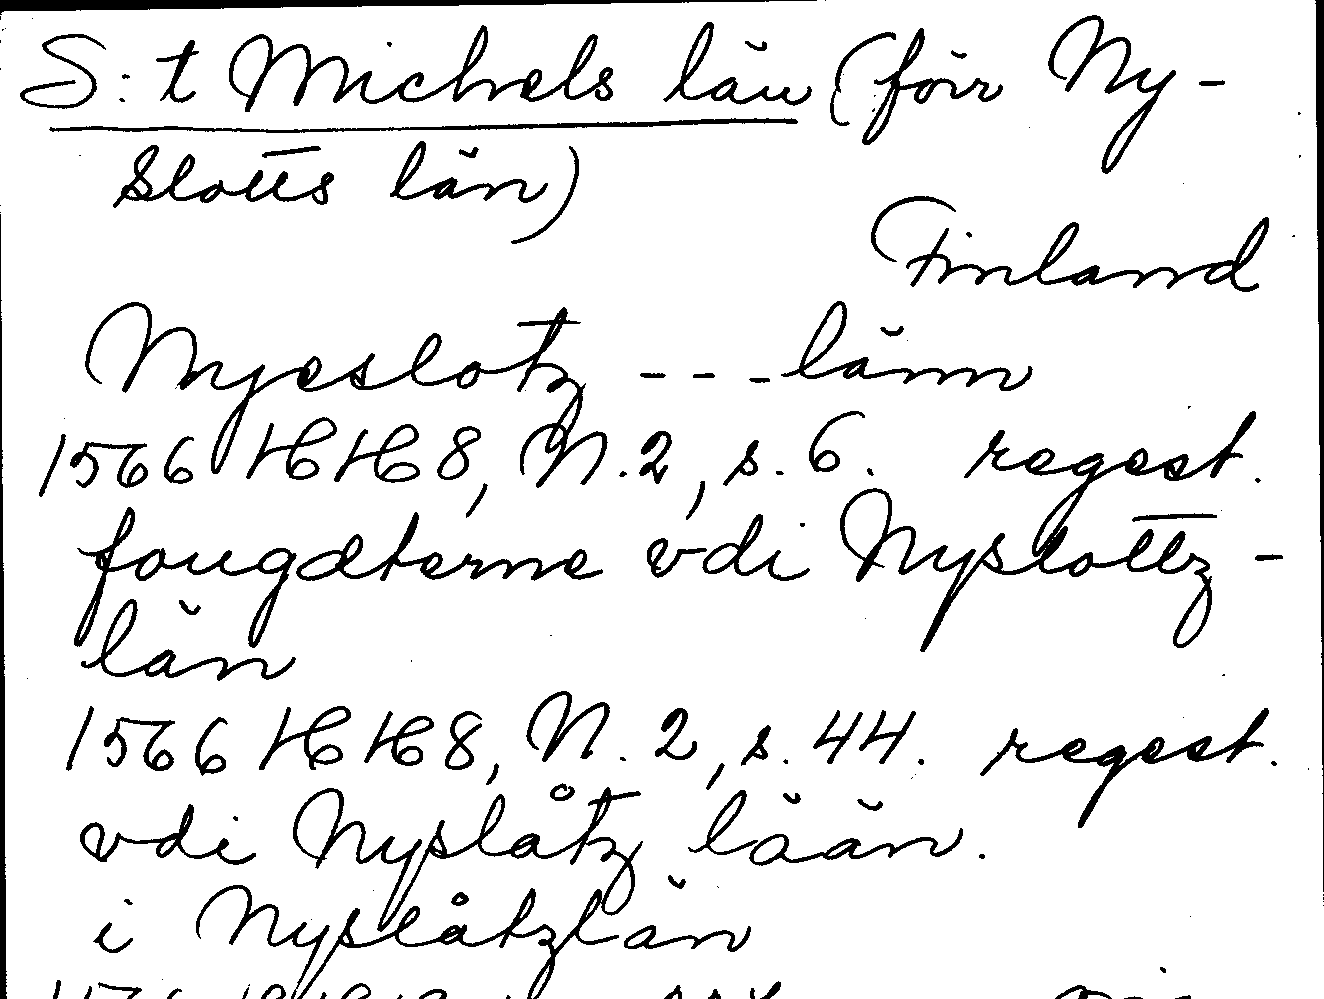 S:t Michels län (förr Ny-
slotts län)
Finland
Nyeslotz - - - länn
1566 HH 8, N. 2, s. 6. regest.
fougdterne vdi Nyslottz-
län
1566 HH 8, N. 2, s. 44. regest.
vdi Nyslåtz lään.
i Nyslåtzlän